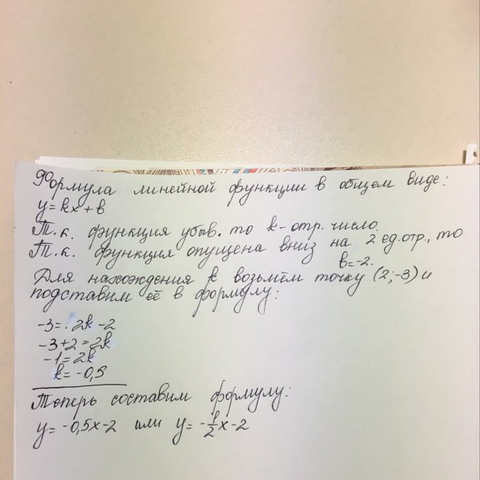 Формула линейной функции в общем виде:
y=kx+b
Т.к. функция убыв. то k - отр. число.
Т.к. функция опущена вниз на 2 ед.отр., то
b=-2.
Для нахождения k возьмём точку (2;-3) и
подставим её в формулу:
-3=2k-2
-3+2=2k
-1=2k
k=-0,5
Теперь составим формулу:
y=-0,5x-2 или y=-1/2x-2